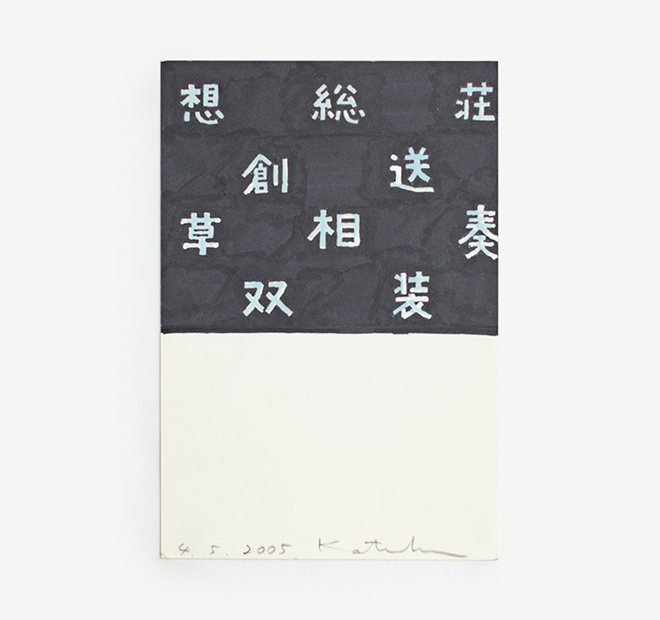 想 総 荘
創 送
草 相 奏
双 装
4. 5. 2005